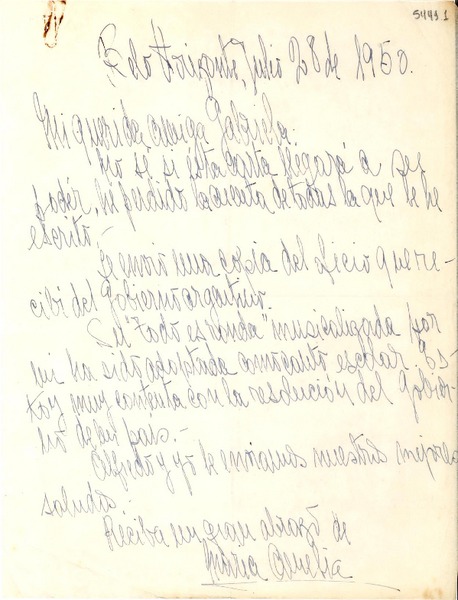 5443 1
Belo Horizonte, Julio 28 de 1950.
Mi querida amiga Gabriela:
No sé si esta carta llegará a su
poder, he perdido la cuenta de todas la que le he
escrito -
Le envio una copia del oficio que re-
cibi del Gobierno argentino.
Su "Todo es ronda" musicalizada por
mi ha sido adaptada como canto escolar. Es-
toy muy contenta con la resolucion del Gobier-
no de mi pais. -
Alfredo y yo le enviamos nuestros mejores
saludos.
Reciba un gran abrazo de
Maria Amelia